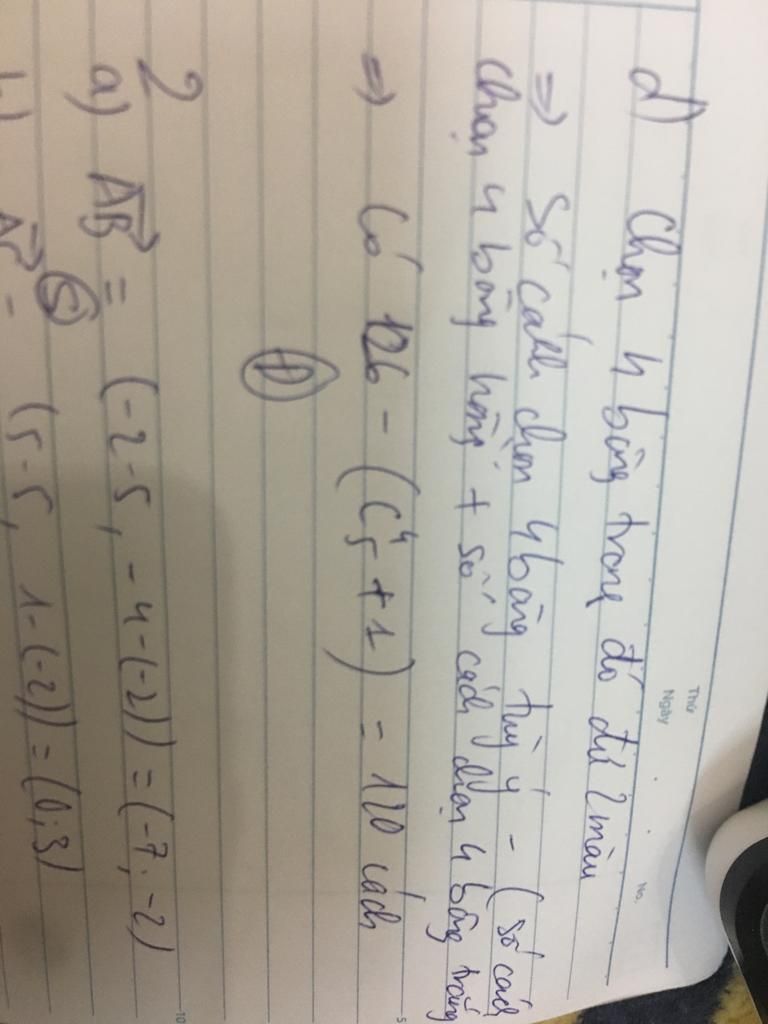 Thứ
Ngày
No.
d) Chọn 4 bông trong đó đủ 2 màu
=> Số cách chọn 4 bông tùy ý - (số cách
chọn 4 bông hồng + số cách chọn 4 bông trắng
=> Có 126 - (C⁴₅ + 1) = 120 cách
5
Đ
2
a) AB⃗ = (-2-5, -4-(-2)) = (-7, -2)
10
S
b) AC⃗ = (5-5, 1-(-2)) = (0; 3)